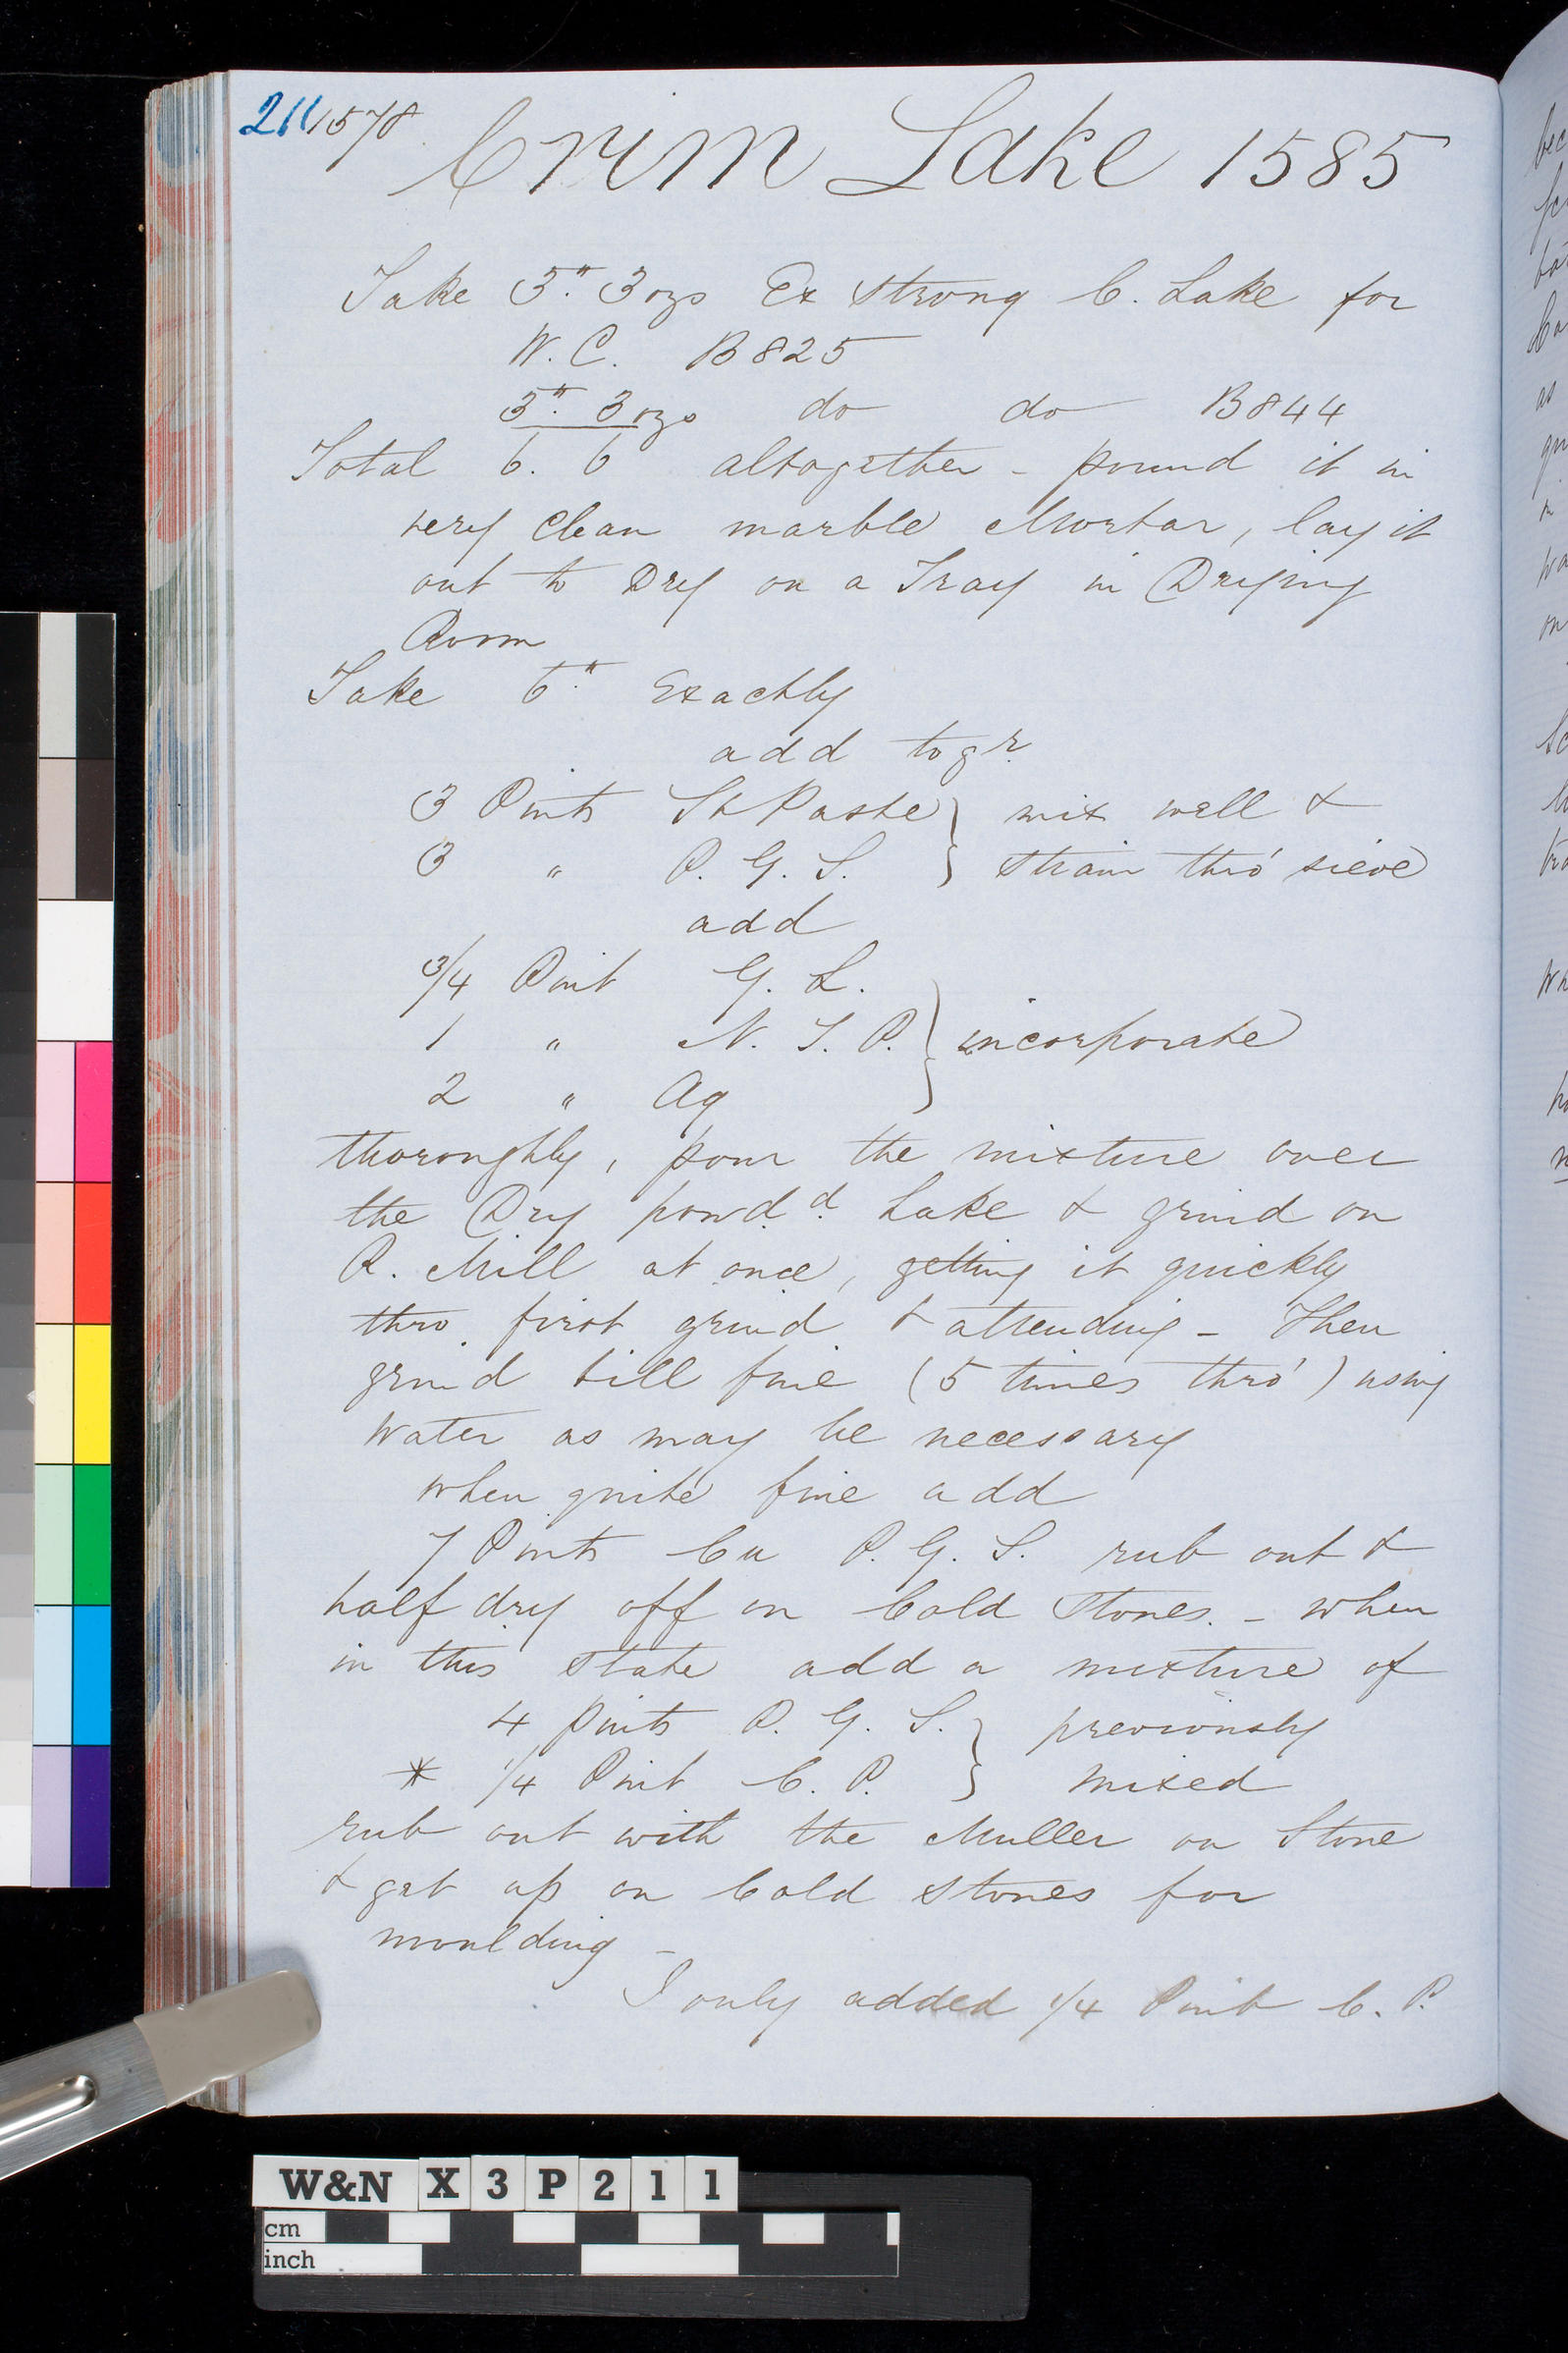 211 1578
Crim Lake 1585
Take 3". 3 ozs Ex Strong C. Lake for
W. C. B825
3". 3 ozs do do B844
Total 6. 6 altogether - pound it in
very clean marble Mortar, lay it
out to Dry on a Tray in Drying
Room
Take 6." Exactly
add togr.
3 Pints St Paste } mix well &
3 " P. G. S. } strain thro' sieve
add
3/4 Pint G. L.
1 " N. T. P. } incorporate
2 " Aq
thoroughly, pour the mixture over
the Dry powd.d Lake & grind on
P. Mill at once, getting it quickly
thro first grind & attending - Then
grind till fine (5 times thro') using
water as may be necessary
when quite fine add
7 Pints Cu P. G. S. rub out &
half dry off on Cold Stones. - when
in this state add a mixture of
4 pints P. G. S. } previously
* 1/4 Pint C. P. } mixed
rub out with the Muller on Stone
& get up on Cold Stones for
moulding -
I only added 1/4 Pint C. P.
W&N X3P211
cm
inch